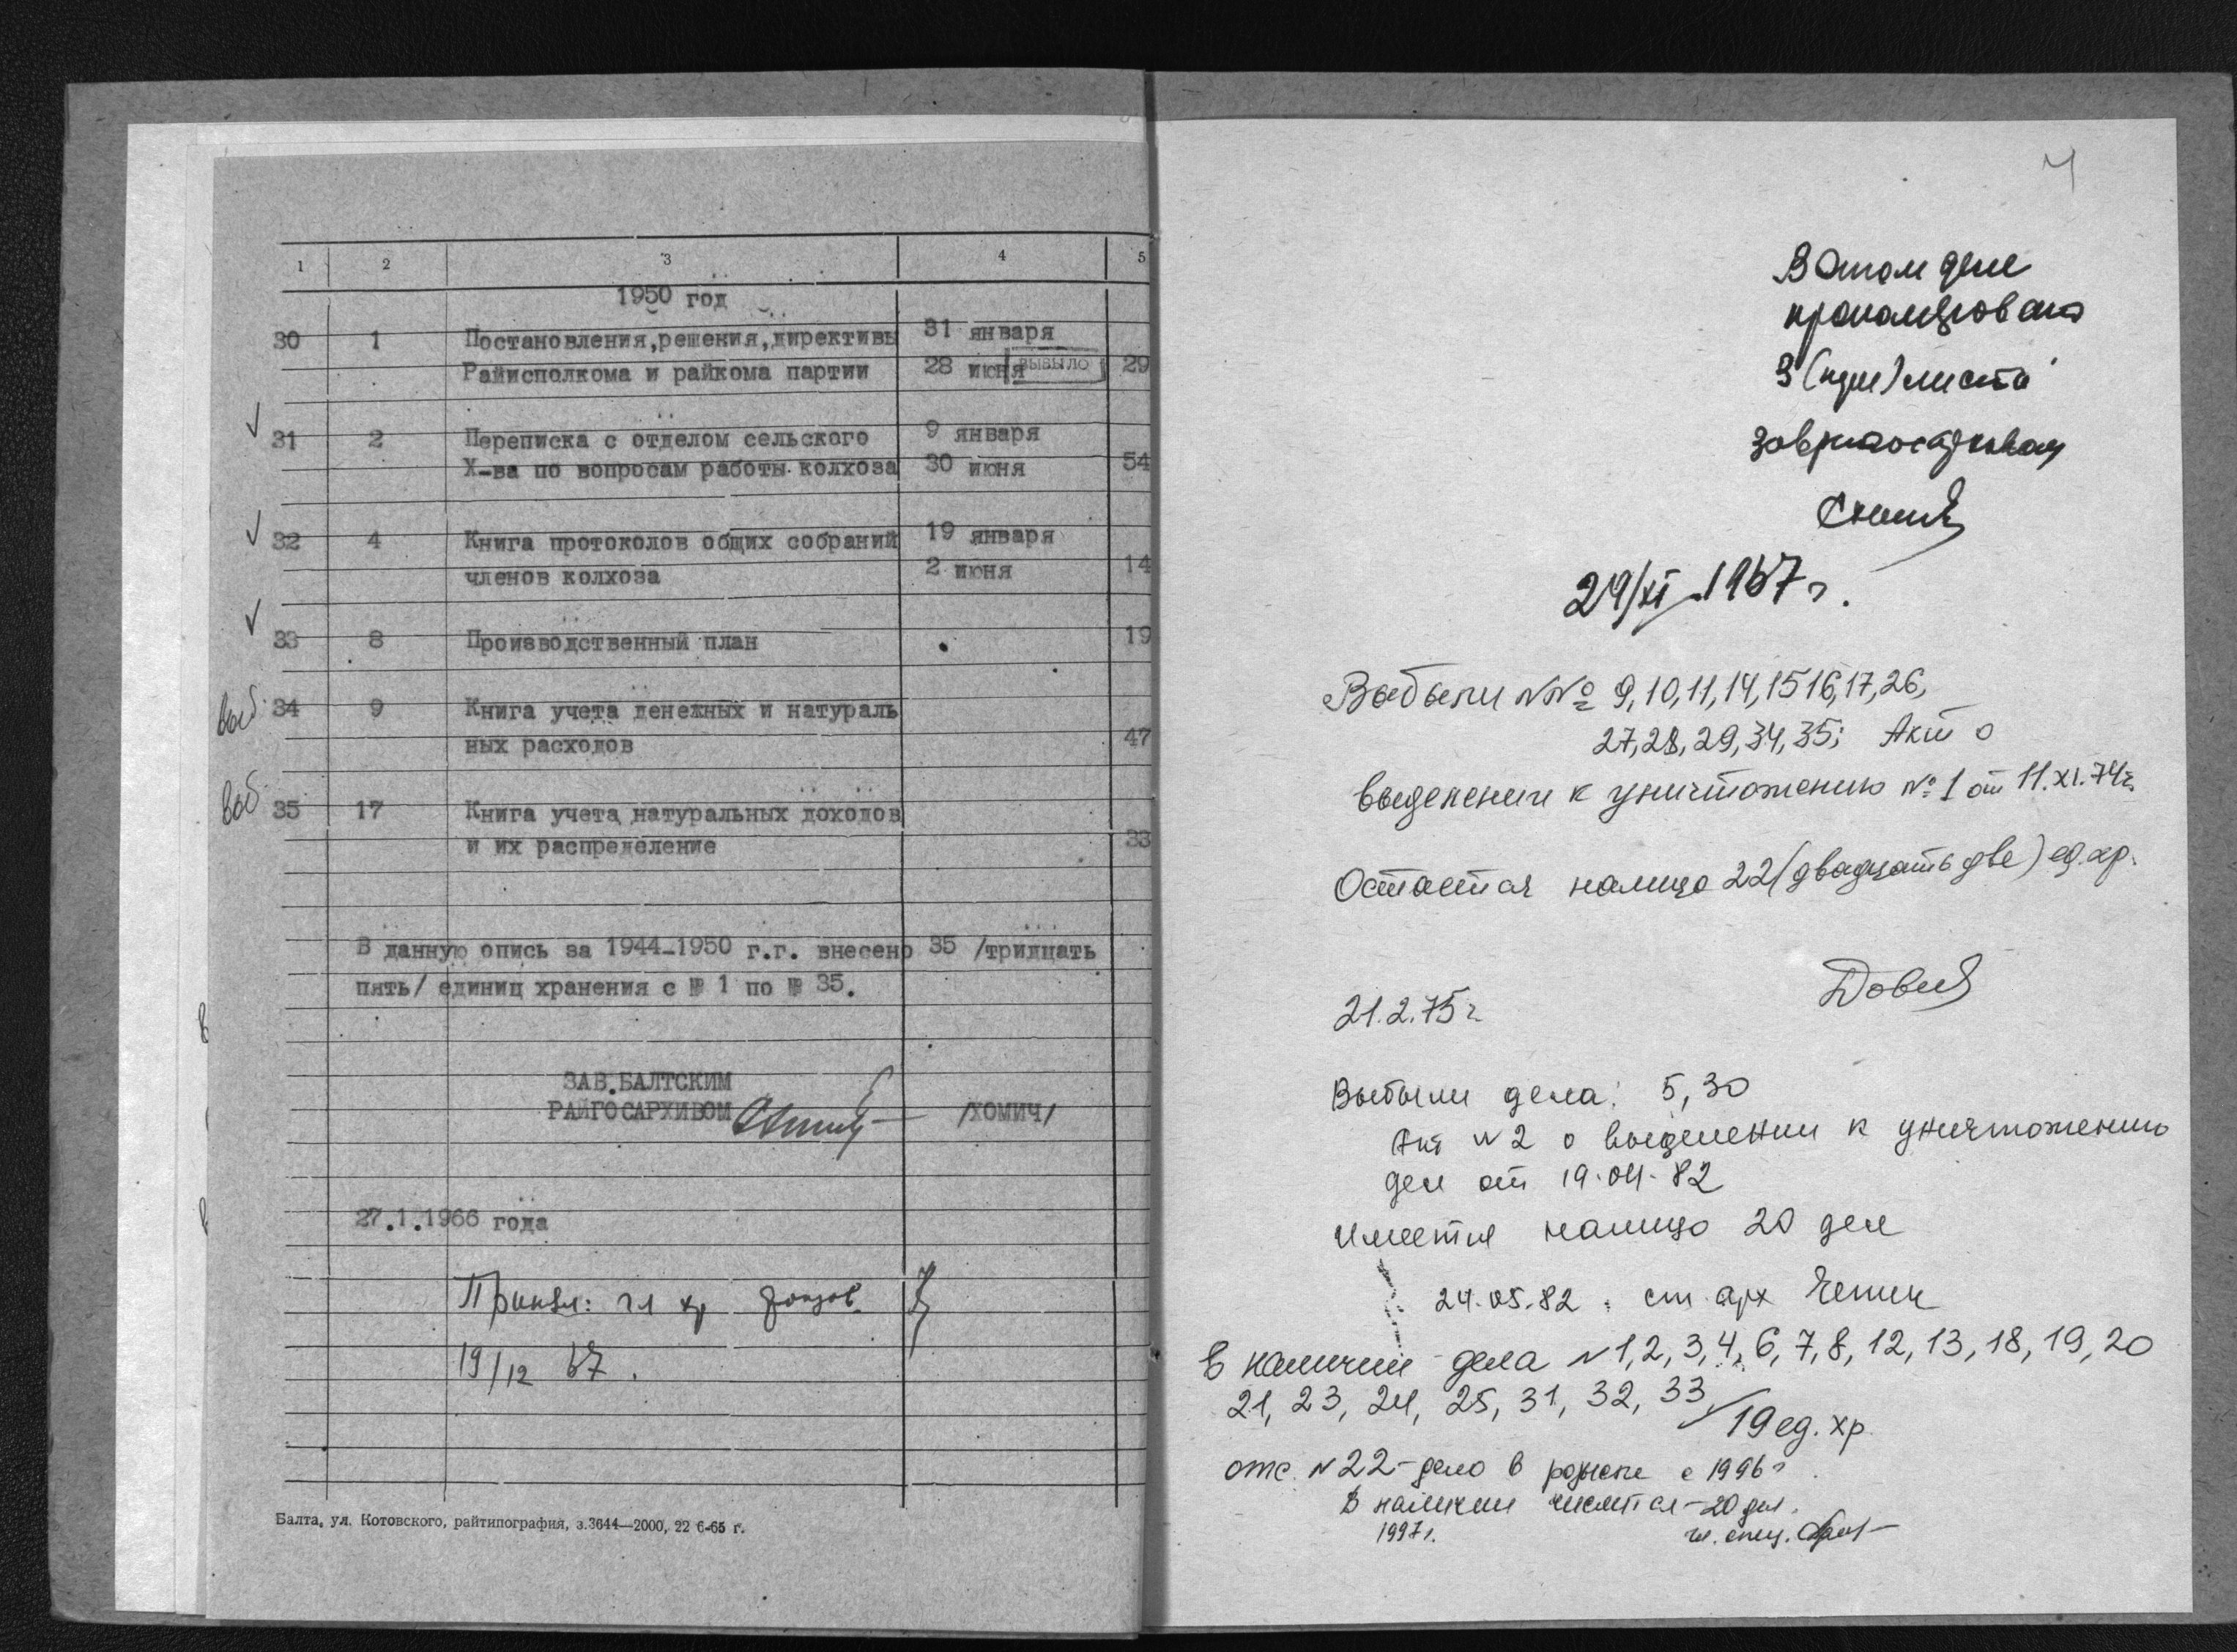 1 2 3 4 5
1950 год
30 1 Постановления,решения,директивы 31 января
Райисполкома и райкома партии 28 июня ВЫБЫЛО 29
31 2 Переписка с отделом сельского 9 января
Х-ва по вопросам работы колхоза 30 июня 54
32 4 Книга протоколов общих собраний 19 января
членов колхоза 2 июня 14
33 8 Производственный план 19
выб. 34 9 Книга учета денежных и натураль
ных расходов 47
выб. 35 17 Книга учета натуральных доходов
и их распределение 33
В данную опись за 1944-1950 г.г. внесено 35 /тридцать
пять/ единиц хранения с № 1 по № 35.
ЗАВ.БАЛТСКИМ
РАЙГОСАРХИВОМ /ХОМИЧ/
27.1.1966 года
19/12 67.
Балта, ул. Котовского, райтипография, з.3644—2000, 22 6-65 г.
4
В этом деле
3 (три) листа
29/XI-1967 г.
Выбыли №№ 9,10,11,14,15 16,17,26,
27,28,29,34,35; Акт о
выделении к уничтожению № 1 от 11.XI.74г.
Остается налицо 22 (двадцать две) ед.хр.
21.2.75 г.
Выбыли дела: 5,30
Акт № 2 о выделении к уничтожению
дел от 19.04.82
Имеется налицо 20 дел
24.05.82. ст. арх
В наличии дела № 1,2,3,4,6,7,8,12,13,18,19,20
21, 23, 24, 25, 31, 32, 33 / 19 ед. хр.
отс. № 22 - дело в розыске с 1996 г.
В наличии числится - 20 дел.
1997 г. гл. спец.